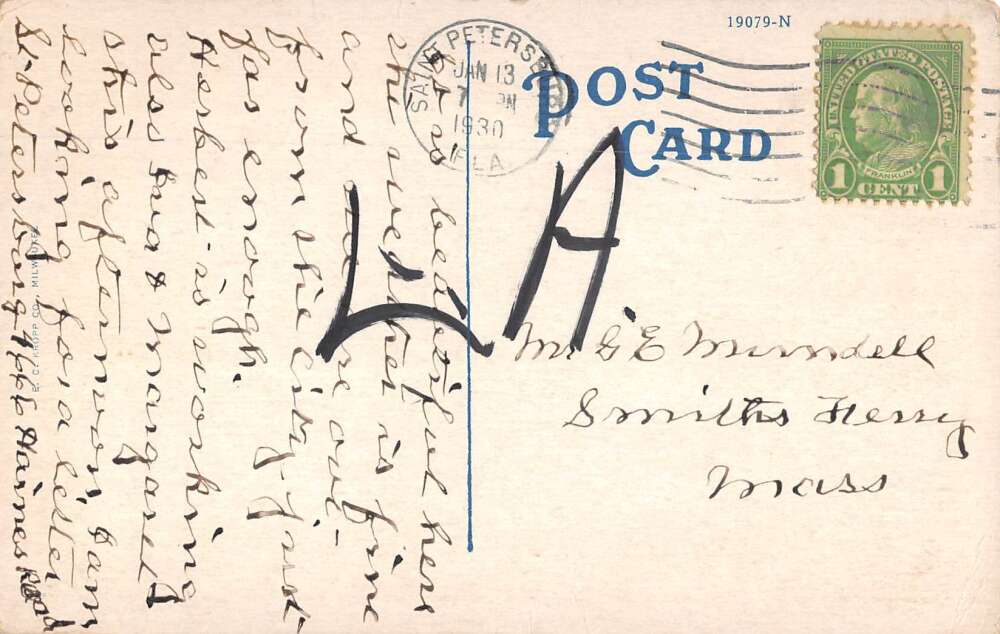 19079-N
POST
CARD
SAINT PETERSBURG
JAN 13
7 PM
1930
FLA.
UNITED STATES POSTAGE
FRANKLIN
1 CENT 1
L A
Mr. G E Mundell
Smiths Ferry
Mass
It is beautiful here
the weather is fine
and we are out-
from the city just
far enough.
Herbert is working
also & Margaret
this afternoon I am
looking for a letter
St. Petersburg 4666 Haines Road
E. C. KROPP CO., MILWAUKEE